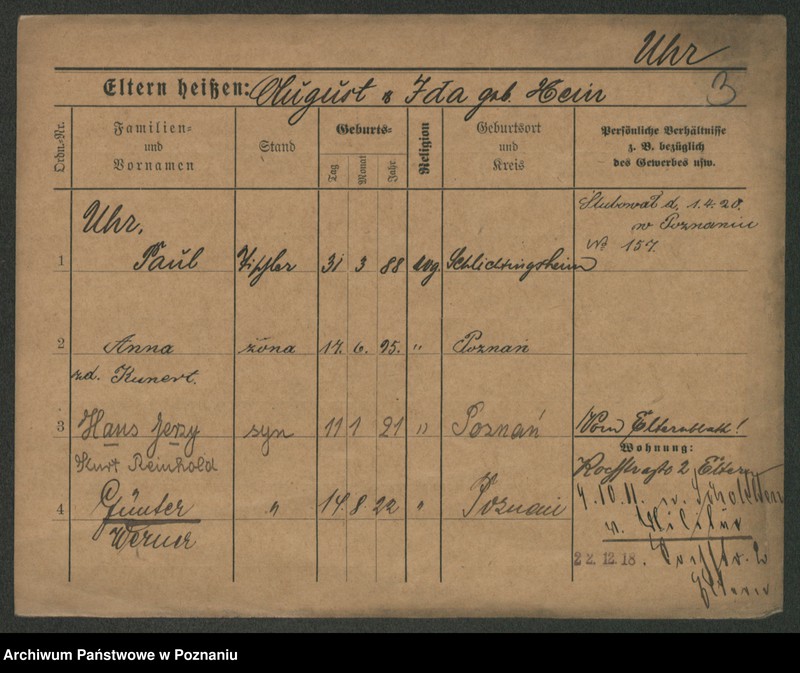 Uhr
Eltern heißen: August & Ida geb. Hein
3
Ordn.-Nr.
Familien- und Vornamen
Stand
Geburts-
Tag
Monat
Jahr
Religion
Geburtsort und Kreis
Persönliche Verhältnisse
z. B. bezüglich
des Gewerbes usw.
Ślubował d. 1.4.20.
w Poznaniu
No 157.
Uhr,
1 Paul Tischler 31 3 88 evg. Schlichtingsheim
2 Anna żona 17. 6. 95. " Poznań
zd. Kunert.
3 Hans Jerzy syn 11 1 21 " Poznań
Kurt Reinhold
Vom Elternblatt!
Wohnung:
2 Eltern
4 Günter " 14. 8. 22 " Poznań
Werner
4.10.11. v.
v. Militär
22.12.18. 2
Eltern
Archiwum Państwowe w Poznaniu